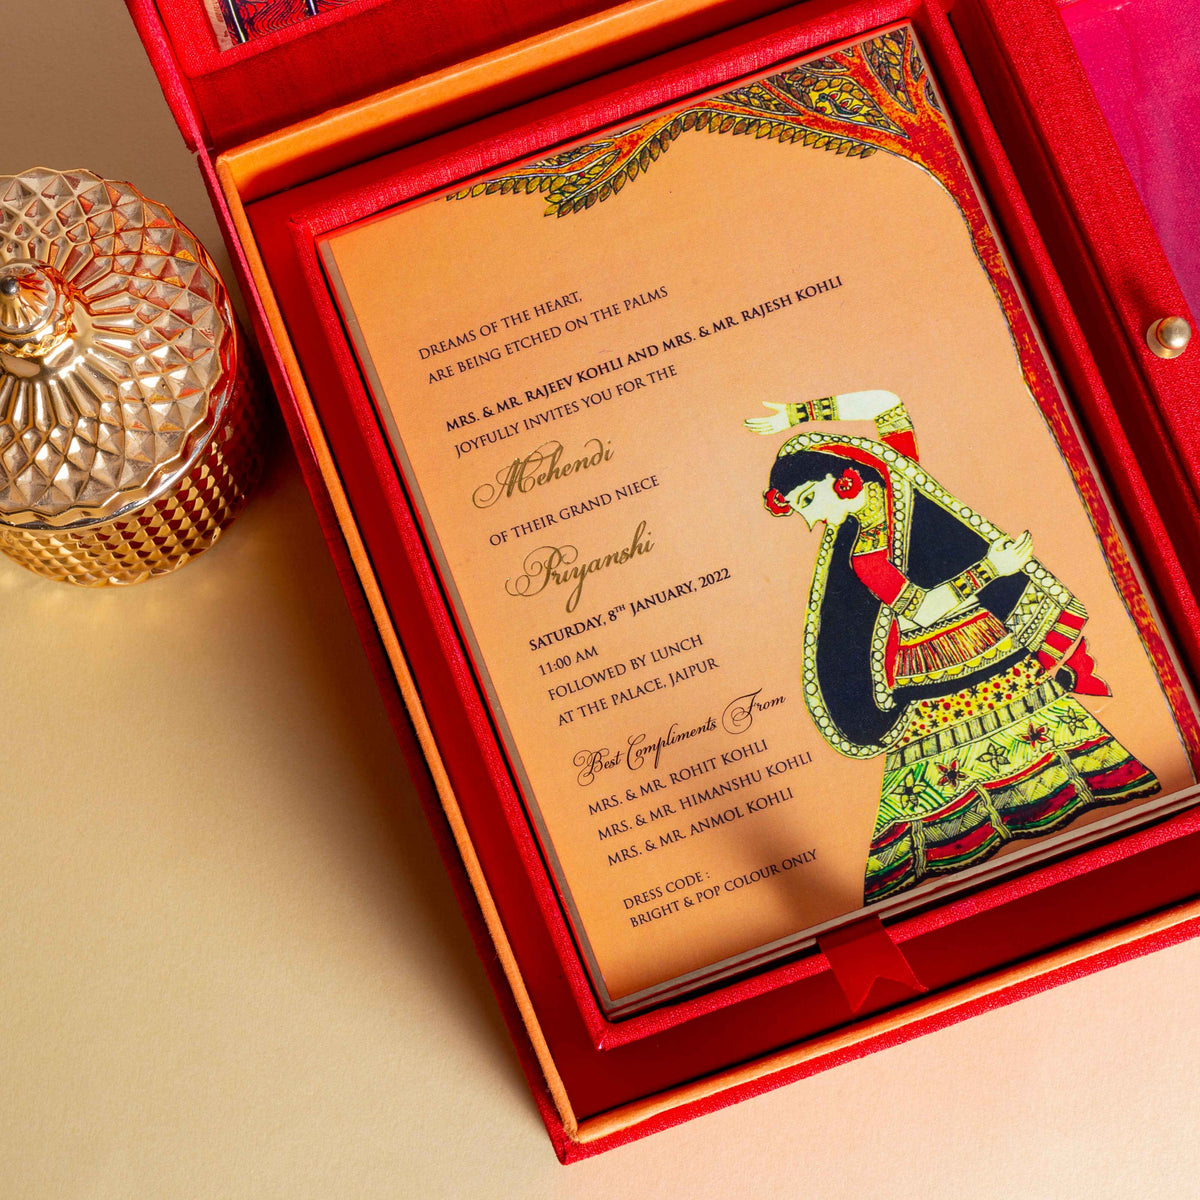 DREAMS OF THE HEART,
ARE BEING ETCHED ON THE PALMS
MRS. & MR. RAJEEV KOHLI AND MRS. & MR. RAJESH KOHLI
JOYFULLY INVITES YOU FOR THE
Mehendi
OF THEIR GRAND NIECE
Priyanshi
SATURDAY, 8TH JANUARY, 2022
11:00 AM
FOLLOWED BY LUNCH
AT THE PALACE, JAIPUR
Best Compliments From
MRS. & MR. ROHIT KOHLI
MRS. & MR. HIMANSHU KOHLI
MRS. & MR. ANMOL KOHLI
DRESS CODE :
BRIGHT & POP COLOUR ONLY